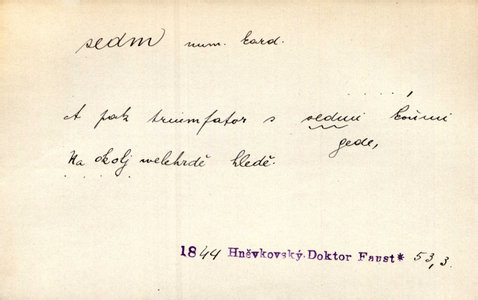 sedm num. kard.
A pak triumfator s sedmi koňmi
gede,
Na okolj welehrdě hledě.
1844 Hněvkovský-Doktor Faust* 53,3.